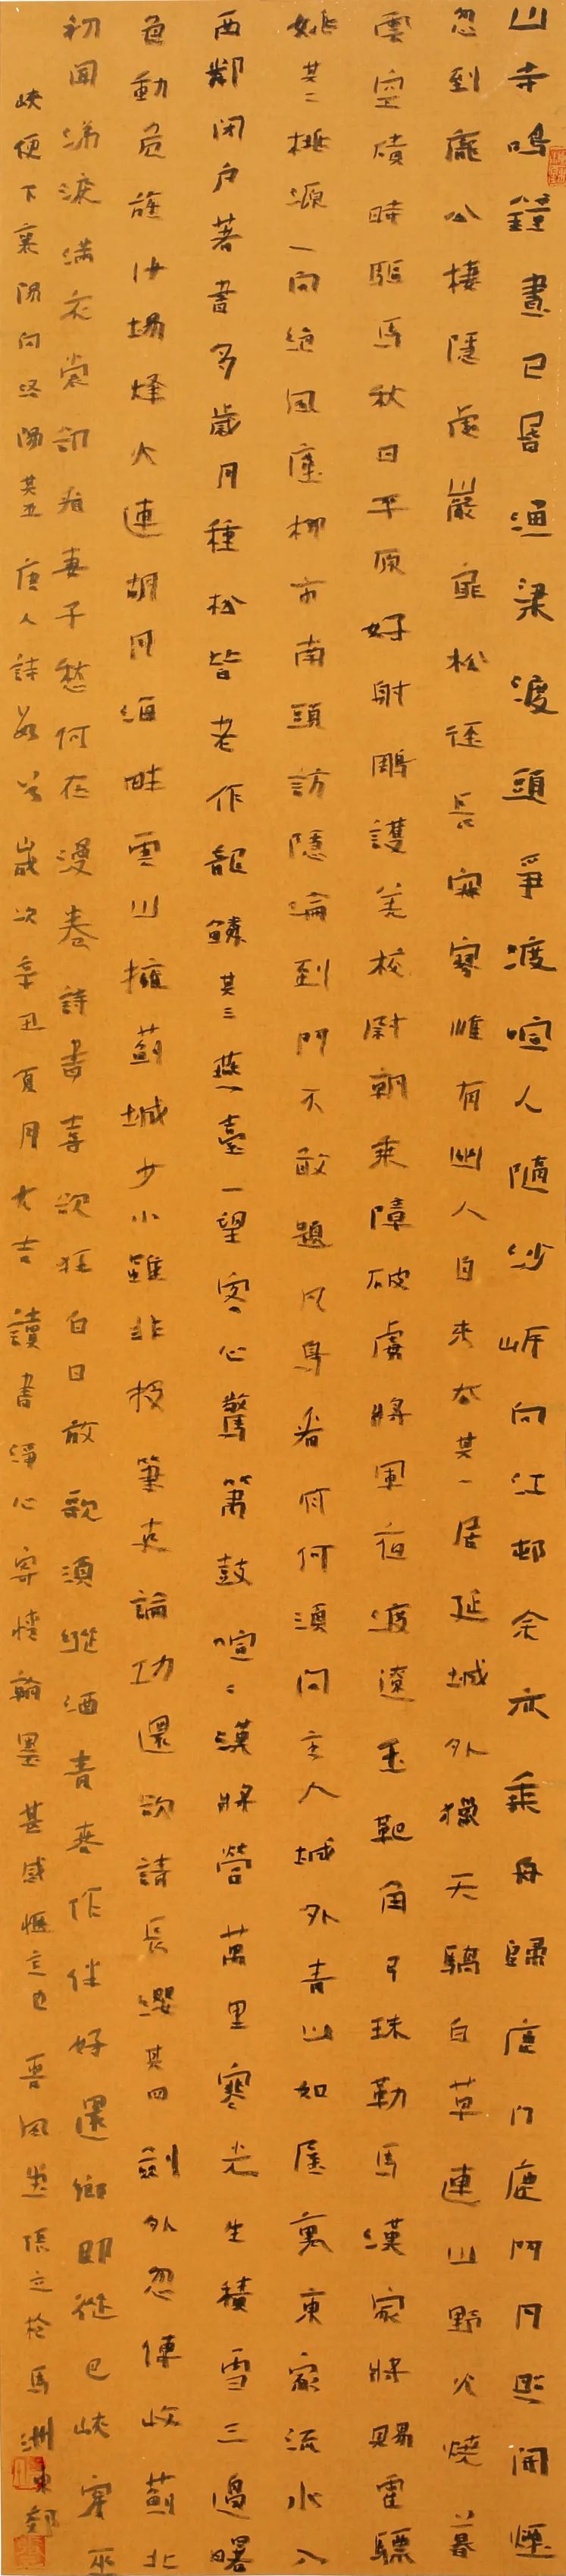 山寺鳴鐘晝已昏漁梁渡頭爭渡喧人隨沙岸向江邨余亦乘舟歸鹿门鹿門月照開煙
忽到龐公棲隱處巖扉松徑長寂寥惟有幽人自來去其一居延城外獵天驕白草連山野火燒暮
雲空磧時驅馬秋日平原好射鵰護羌校尉朝乘障破虜將軍夜渡遼玉靶角弓珠勒馬漢家將賜霍嫖
姚其二桃源一向絕風塵柳市南頭訪隱淪到門不敢題凡鳥看竹何須問主人城外青山如屋裏東家流水入
西鄰閉户著書多歲月種松皆老作龍鱗其三燕臺一望客心驚簫鼓喧〻漢將營萬里寒光生積雪三邊曙
色動危旌沙場烽火連胡月海畔雲山擁薊城少小雖非投筆吏論功還欲請長纓其四劍外忽傳收薊北
初聞涕淚滿衣裳卻看妻子愁何在漫卷詩書喜欲狂白日放歌須縱酒青春作伴好還鄉即從巴峽穿巫
峽便下襄陽向洛陽其五唐人詩數首歲次辛丑夏月大吉讀書淨心寄情翰墨甚感愜意也晉風堂張立於馬洲東郊